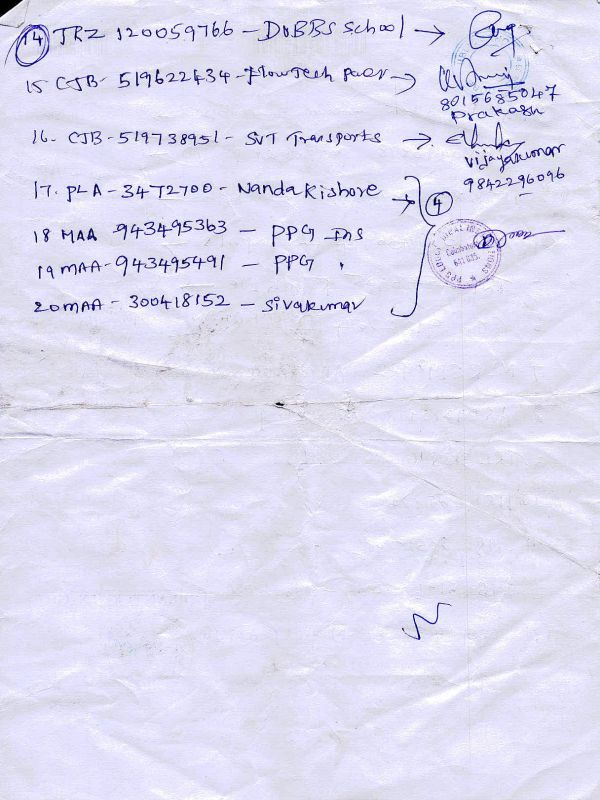 14 TRZ 120059766 - DUBBS School →
15 CJB - 519622434 - Flowtech →
8015685047
Prakash
16. CJB - 519738951 - SVT Transports →
Vijayakumar
9842296096
17. PLA - 3472700 - Nanda Kishore → 4
18 MAA 943495363 - PPG Ins
19 MAA - 943495491 - PPG "
20 MAA - 300418152 - Sivakumar